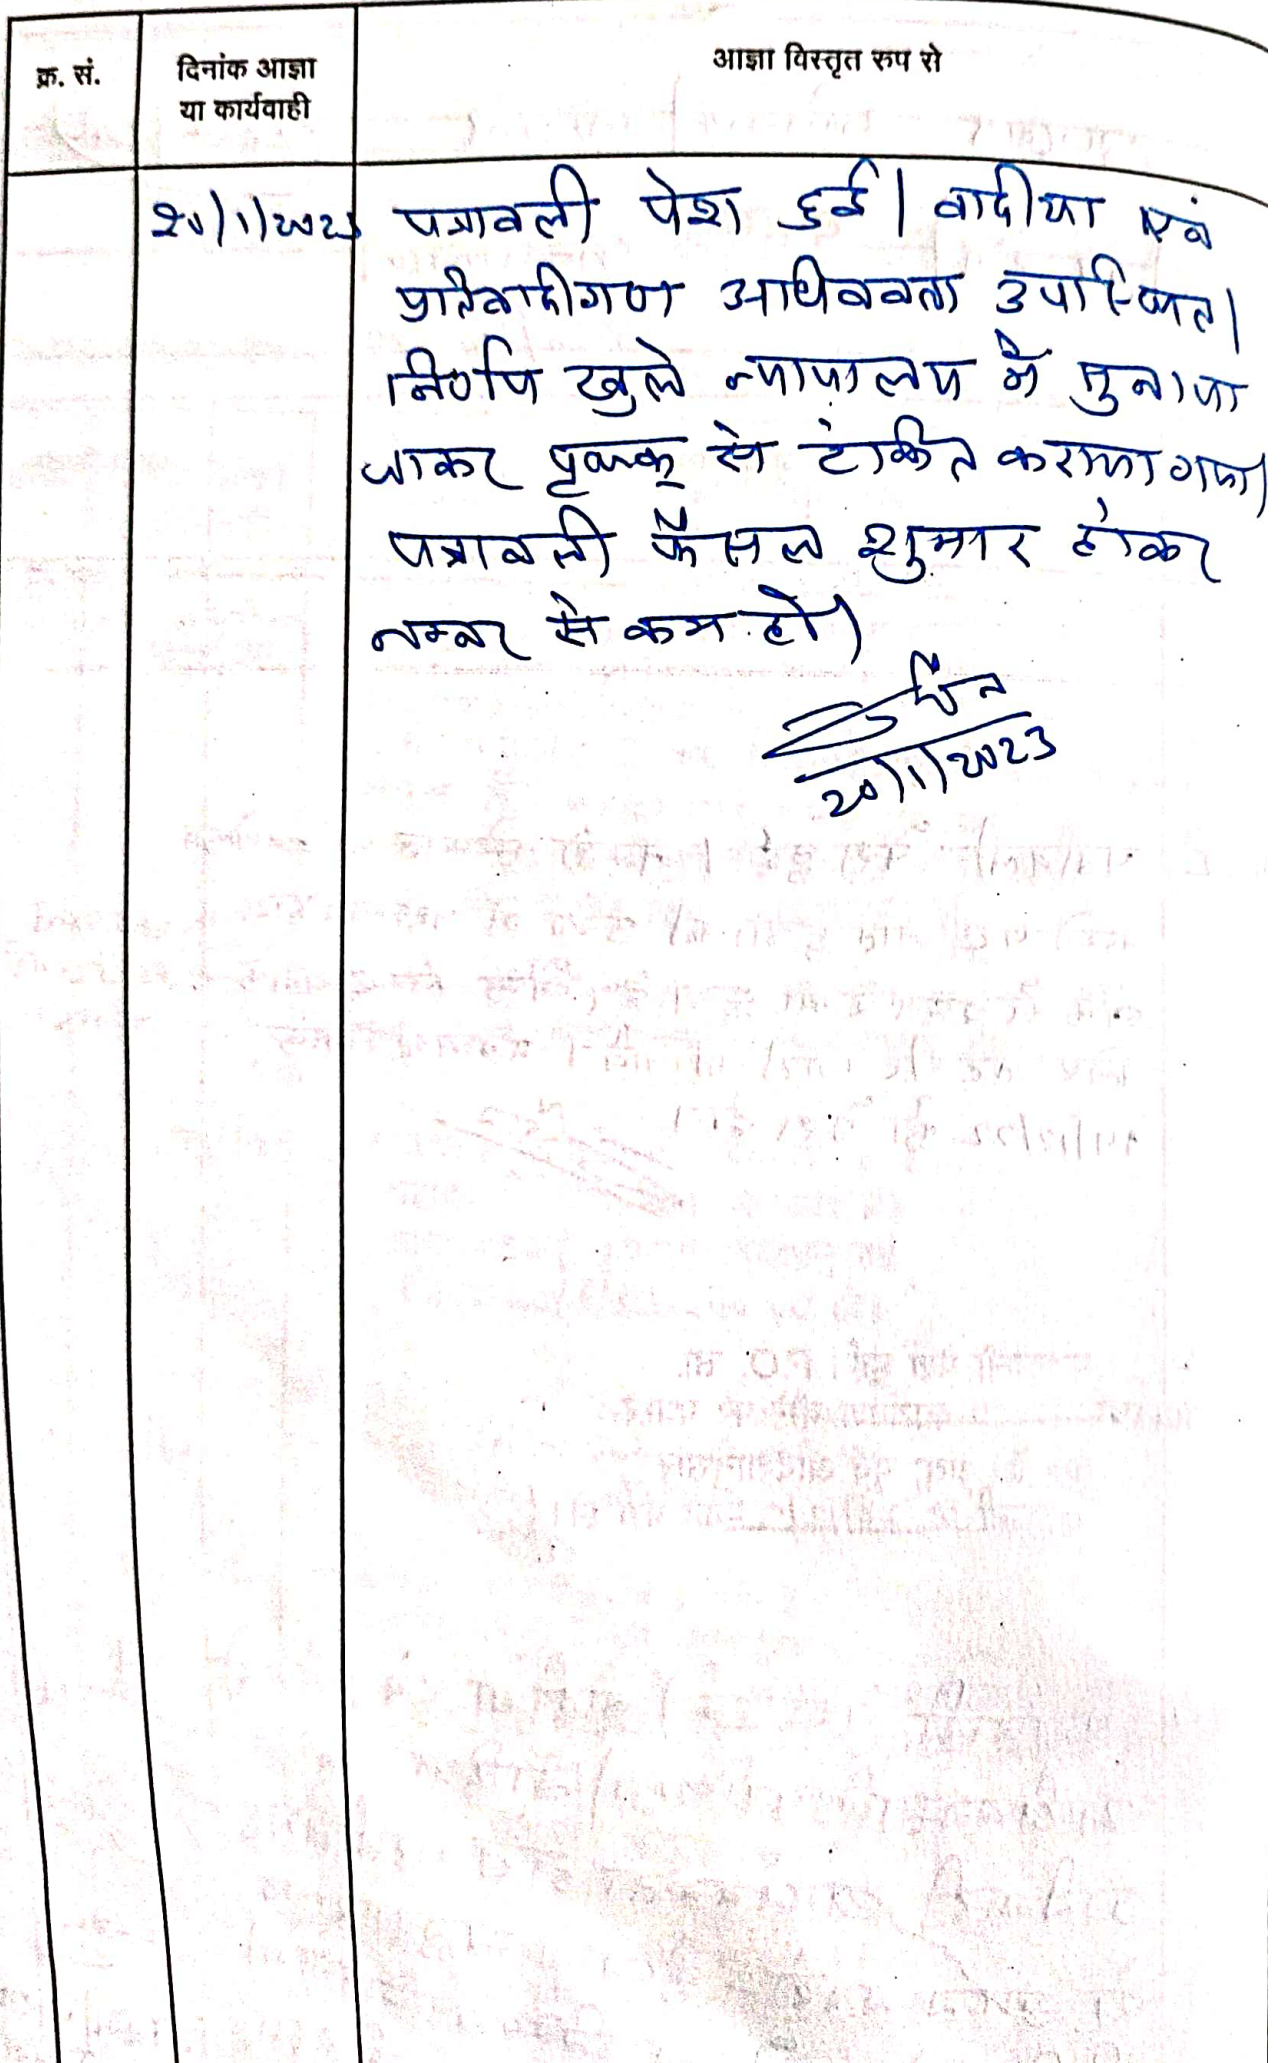 क्र. सं.
दिनांक आज्ञा
या कार्यवाही
आज्ञा विस्तृत रुप से
20/1/2023 पत्रावली पेश हुई। वादीया एवं
प्रतिवादीगण अधिवक्ता उपस्थित।
निर्णय खुले न्यायालय में सुनाया
जाकर पृथक् से टंकित कराया गया।
पत्रावली फैसल शुमार होकर
नम्बर से कम हो।
20/1/2023